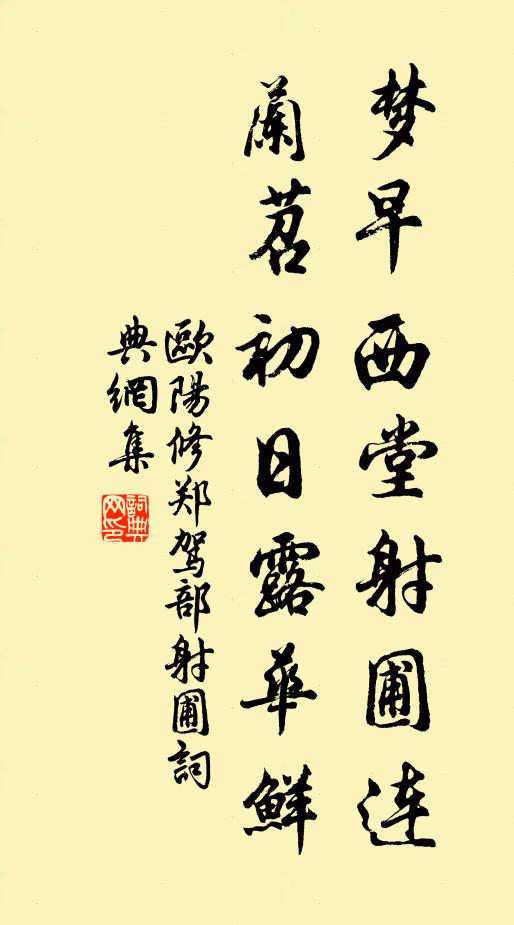 梦早西堂射圃连
蘭苕初日露華鮮
歐陽修郑駕部射圃詞
典網集
詞典网印